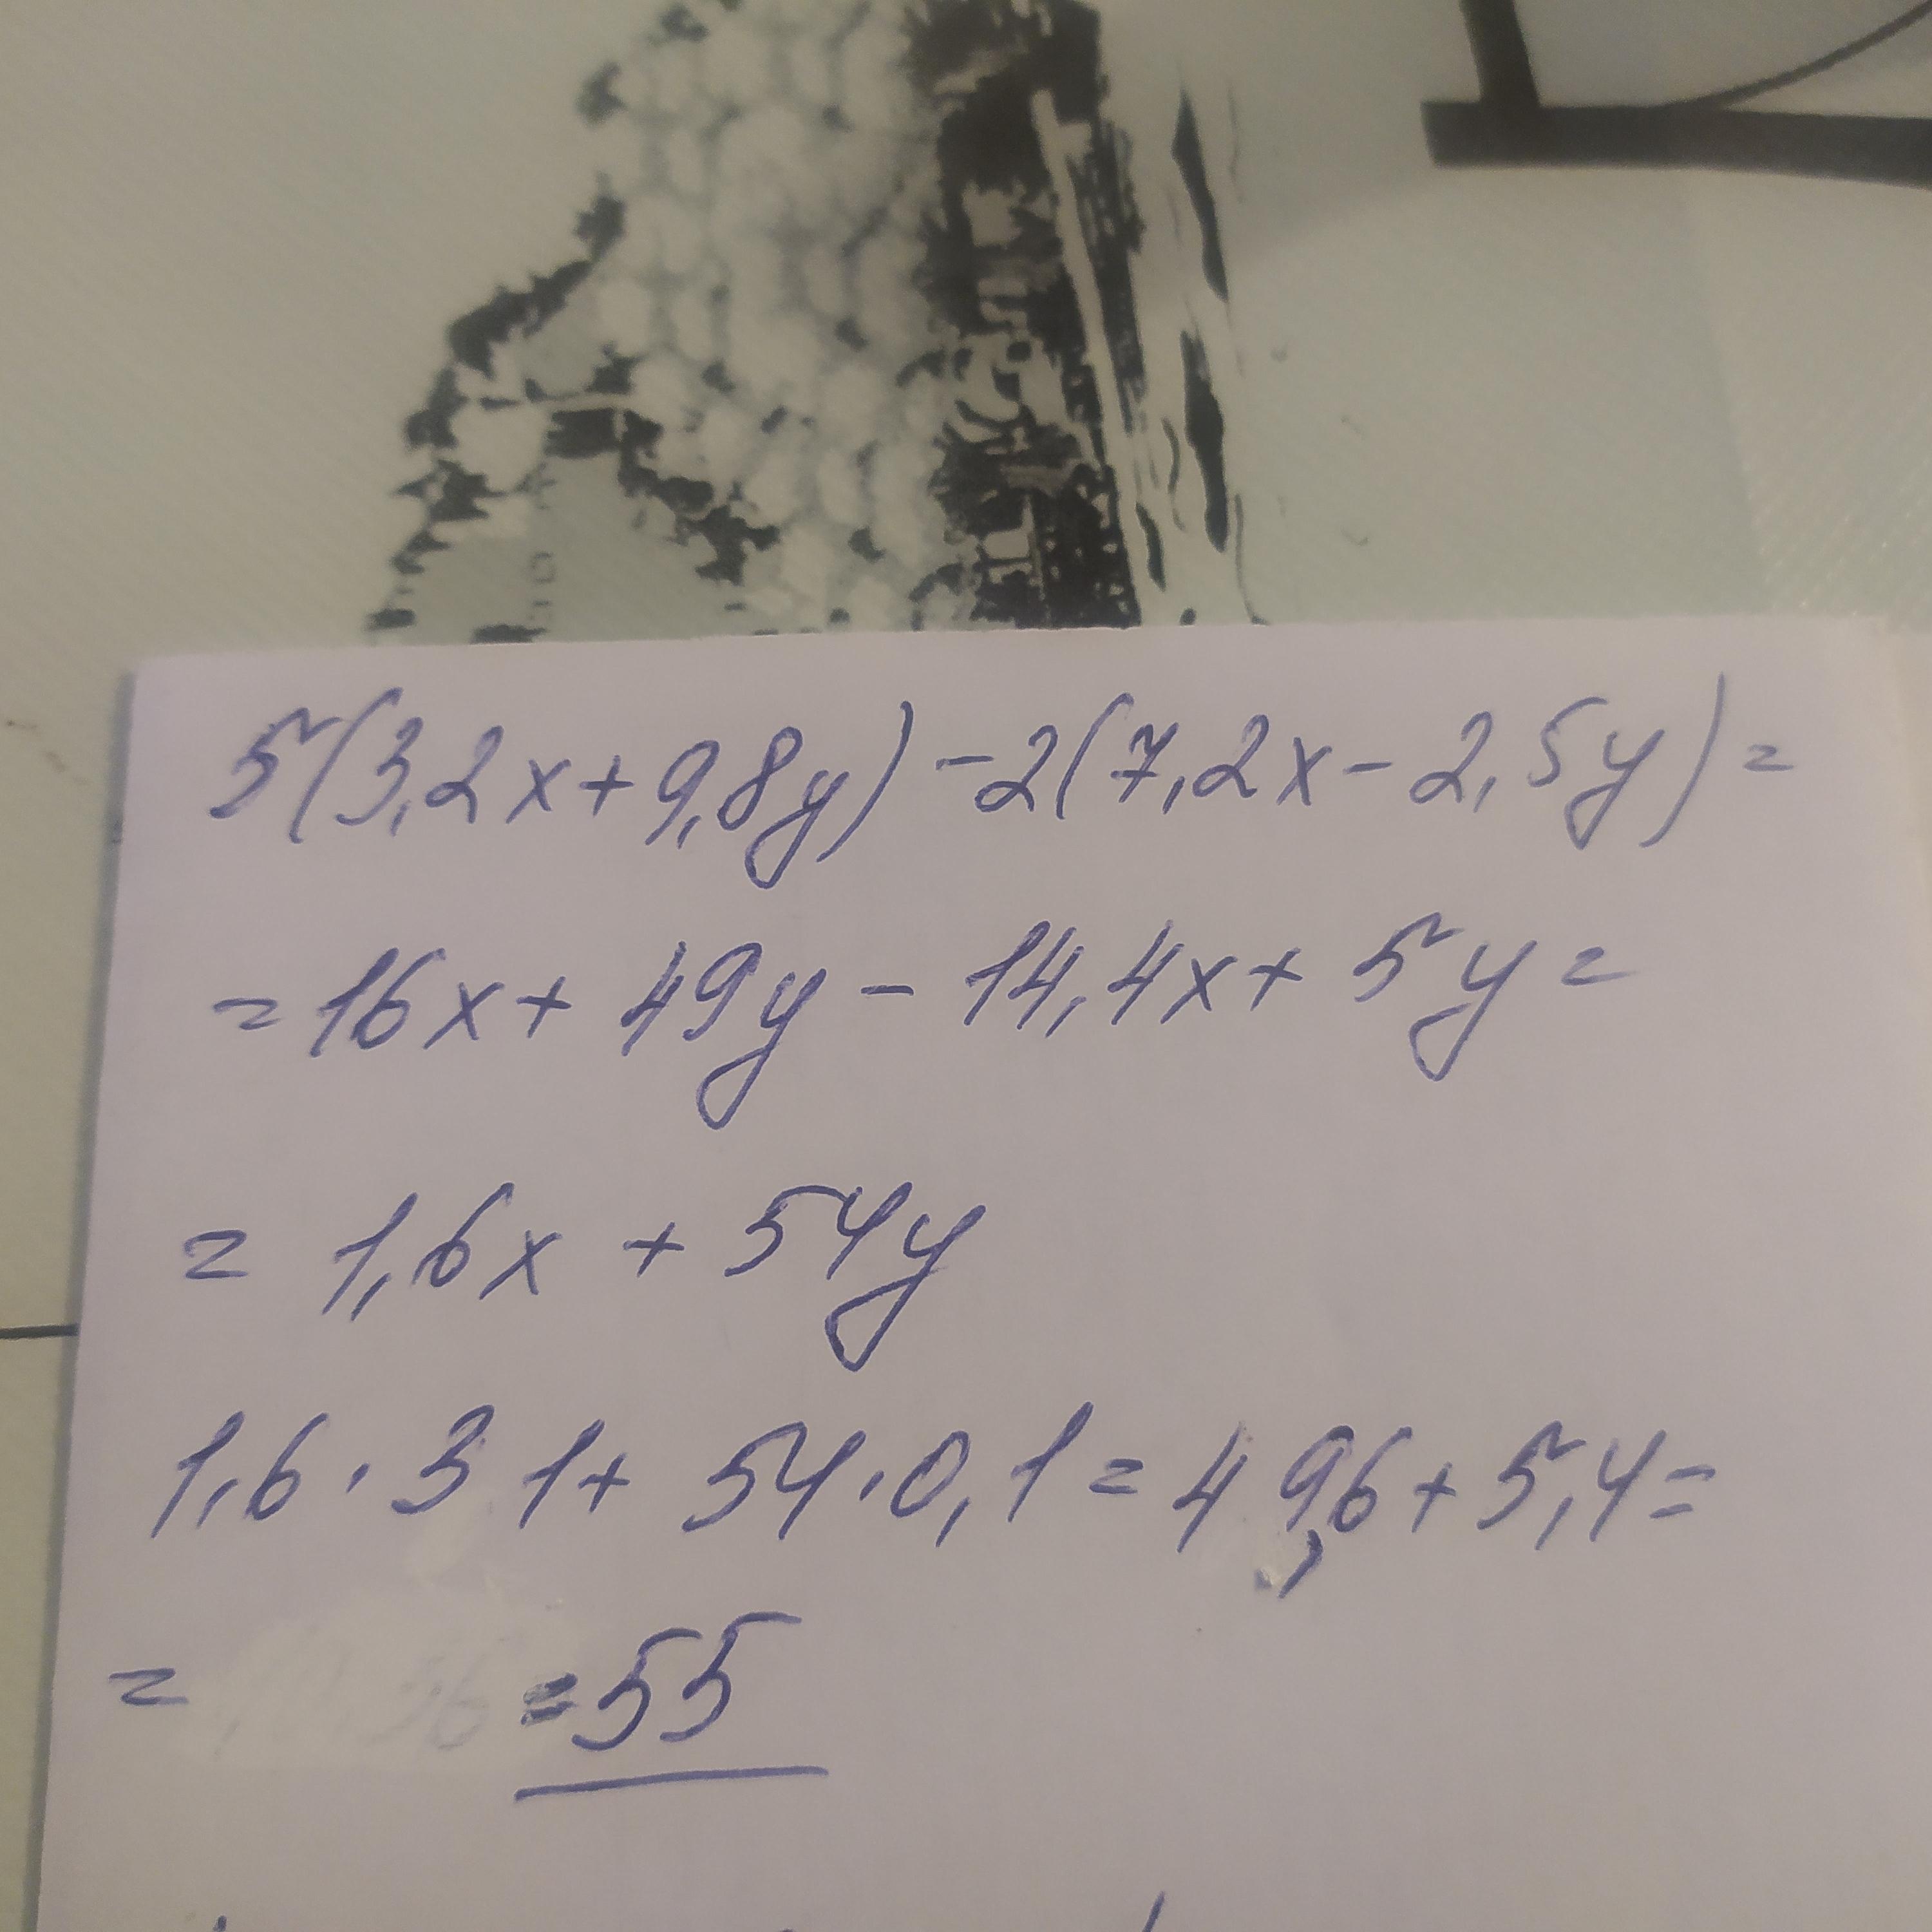 5(3,2x+9,8y)-2(7,2x-2,5y)=
=16x+49y-14,4x+5y=
=1,6x+54y
1,6·31+54·0,1=49,6+5,4=
= =55